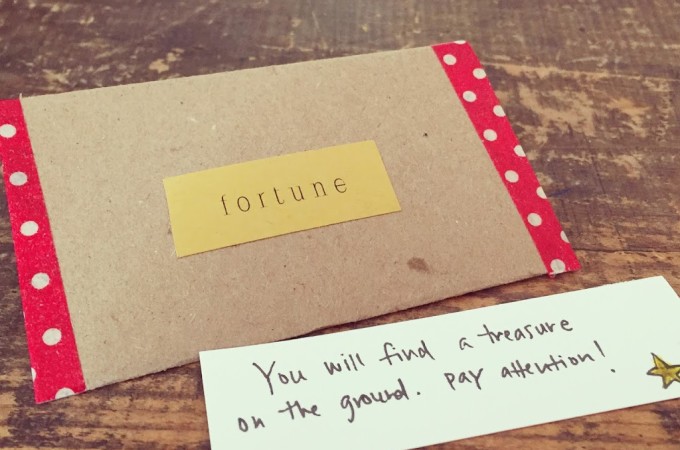 fortune
You will find a treasure
on the ground. pay attention!